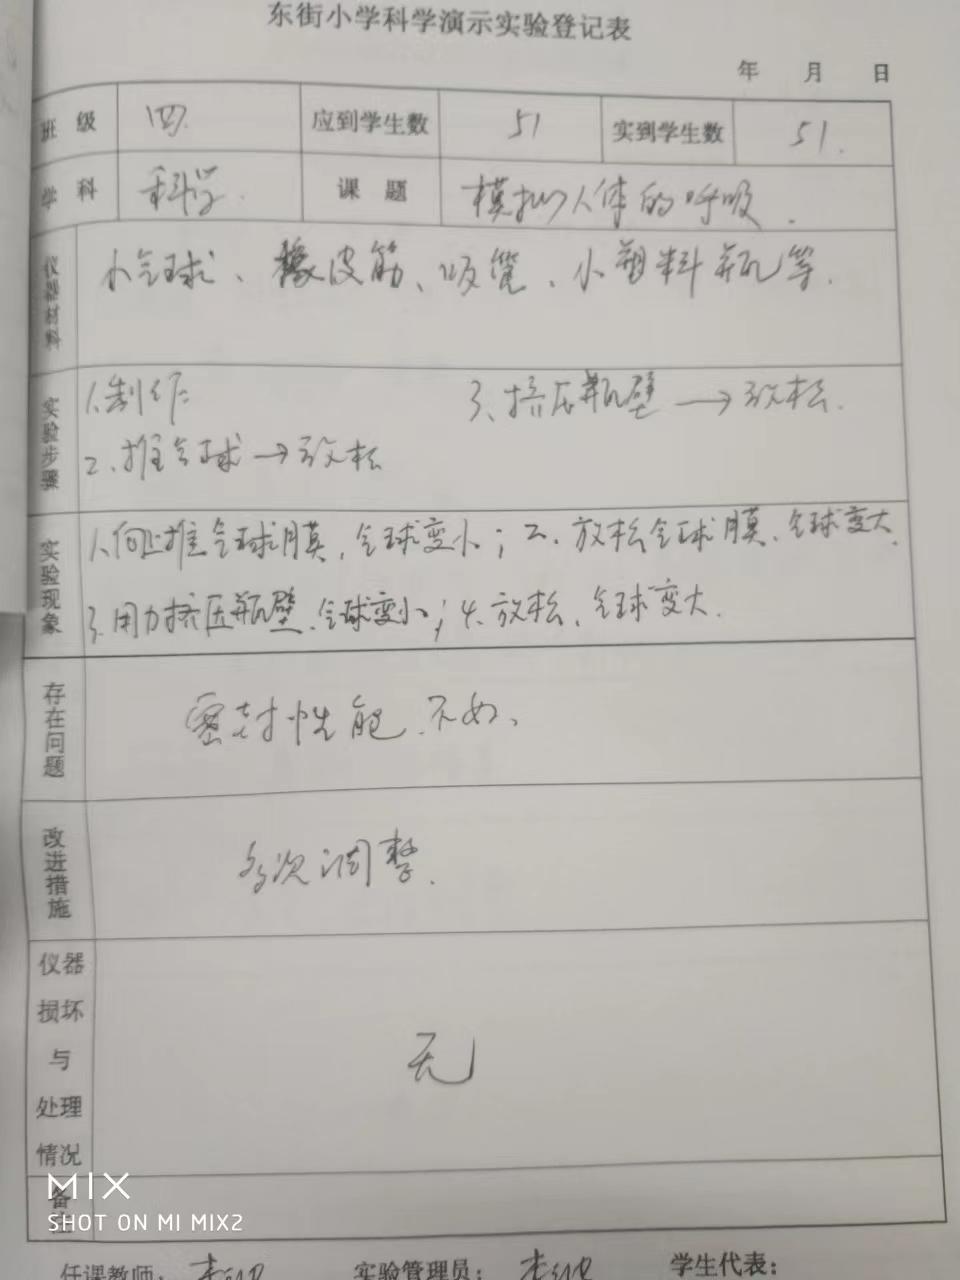 东街小学科学演示实验登记表
年 月 日
班级 四. 应到学生数 51 实到学生数 51.
学科 科学. 课题 模拟人体的呼吸.
仪器材料 小气球、橡皮筋、吸管、小塑料瓶等.
实验步骤 1.制作 3、挤压瓶壁→放松.
2、推气球→放松
实验现象 1、向上推气球膜,气球变小;2、放松气球膜、气球变大.
3、用力挤压瓶壁、气球变小;4、放松、气球变大.
存在问题 密封性能.不好、
改进措施 多次调整.
仪器损坏与处理情况 无
备注
MIX
SHOT ON MI MIX2
任课教师: 实验管理员: 学生代表: